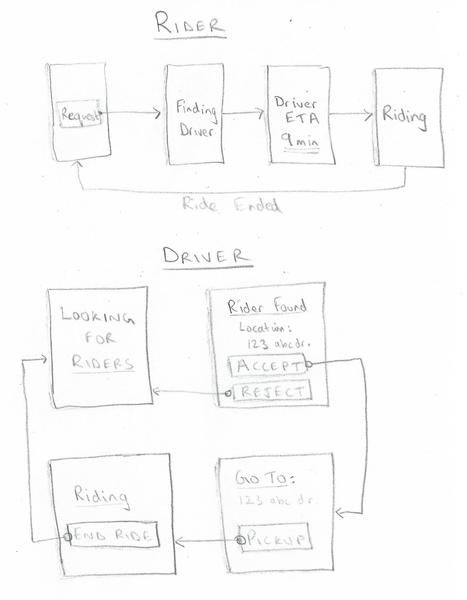 RIDER
Request
Finding
Driver
Driver
ETA
9 min
Riding
Ride Ended
DRIVER
LOOKING
FOR
RIDERS
Rider Found
Location:
123 abc dr.
ACCEPT
REJECT
Riding
END RIDE
GO TO:
123 abc dr.
PICKUP